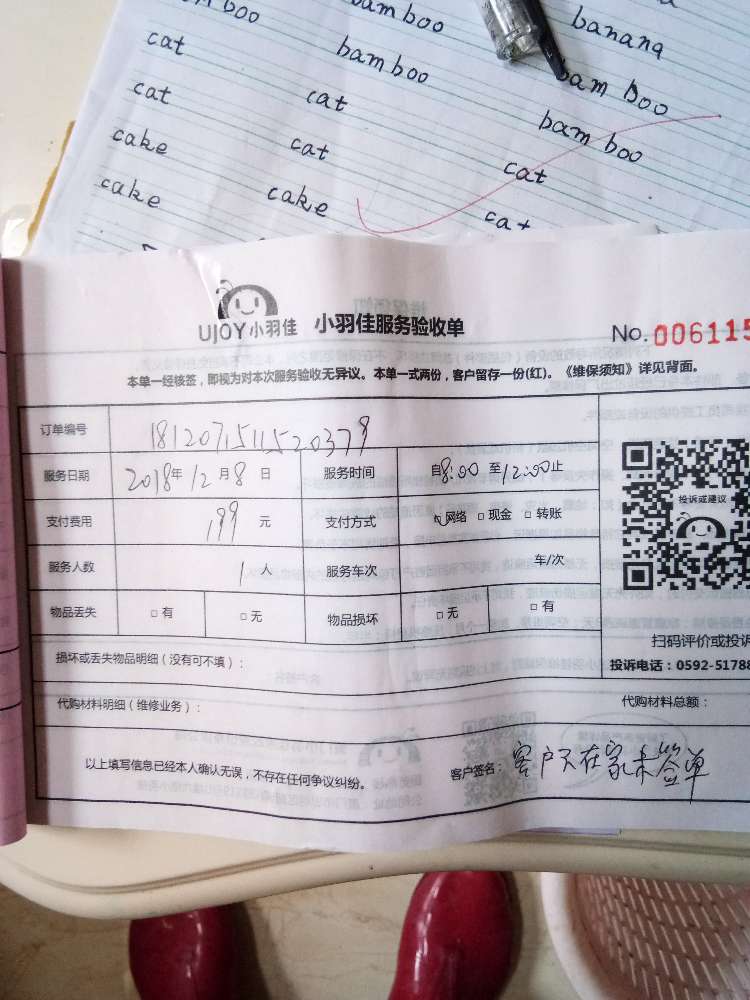 bamboo
banana
cat
bamboo
bamboo
cat
cat
bamboo
cake
cat
cat
cake
cake
cat
UJOY小羽佳 小羽佳服务验收单 No.006115
本单一经核签，即视为对本次服务验收无异议。本单一式两份，客户留存一份(红)。《维保须知》详见背面。
订单编号 1812071511520379
服务日期 2018年12月8日 服务时间 自8:00至12:00止
支付费用 199元 支付方式 ☑网络 □现金 □转账
投诉或建议
服务人数 1人 服务车次 车/次
物品丢失 □有 □无 物品损坏 □无 □有
扫码评价或投诉
损坏或丢失物品明细（没有可不填）：
投诉电话：0592-51788
代购材料明细（维修业务）： 代购材料总额：
以上填写信息已经本人确认无误，不存在任何争议纠纷。 客户签名：客户不在家未签单